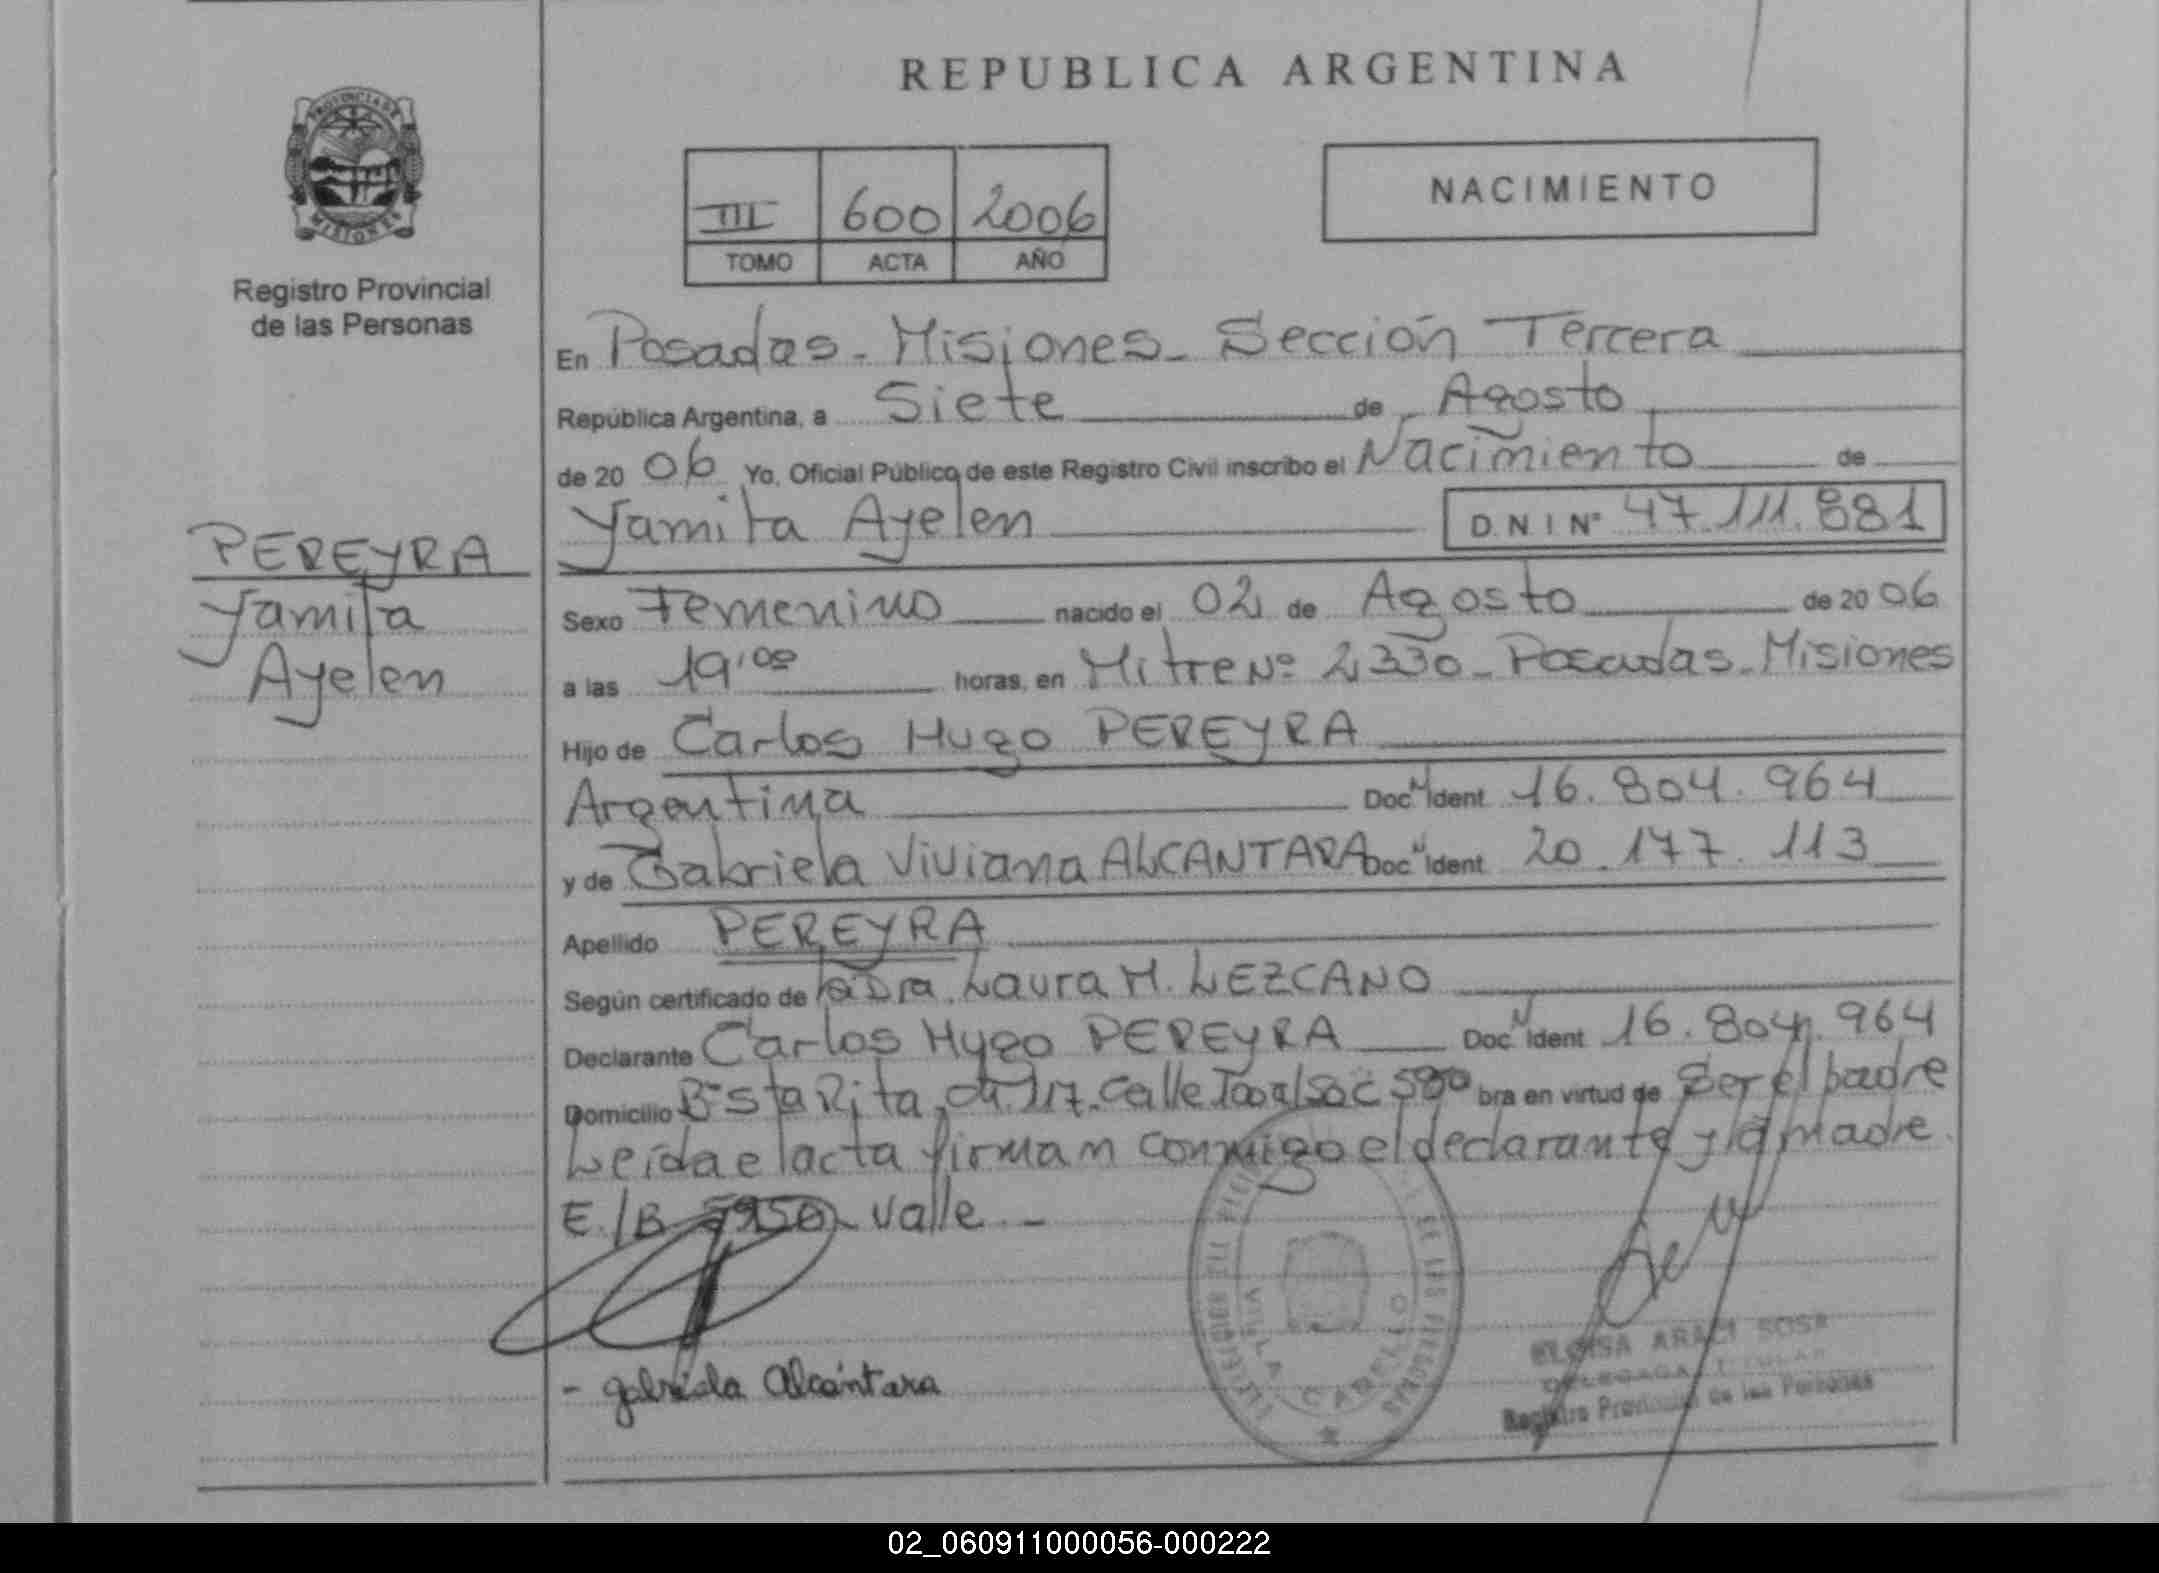 REPUBLICA ARGENTINA
PROVINCIA DE
MISIONES
Registro Provincial
de las Personas
III 600 2006
TOMO ACTA AÑO
NACIMIENTO
En Posadas - Misiones - Sección Tercera
República Argentina, a Siete de Agosto
de 20 06 Yo, Oficial Público de este Registro Civil inscribo el Nacimiento de
Yamita Ayelen D.N.I Nº 47.111.881
PEREYRA
Yamita
Ayelen
Sexo Femenino nacido el 02 de Agosto de 20 06
a las 19'00 horas, en Mitre Nº 2330 - Posadas - Misiones
Hijo de Carlos Hugo PEREYRA
Argentina Doc Ident 16.804.964
y de Gabriela Viviana ALCANTARA Doc Ident 20.177.113
Apellido PEREYRA
Según certificado de la Dra. Laura M. LEZCANO
Declarante Carlos Hugo PEREYRA Doc Ident 16.804.964
Domicilio Bº Sta Rita, calle bra en virtud de Ser el padre
Leída el acta firman conmigo el declarante y la madre.
E./B valle. -
- gabriela Alcántara
VILLA CABELLO
ELOISA ARACI SOSA
DELEGADA TITULAR
Registro Provincial de las Personas
02_060911000056-000222